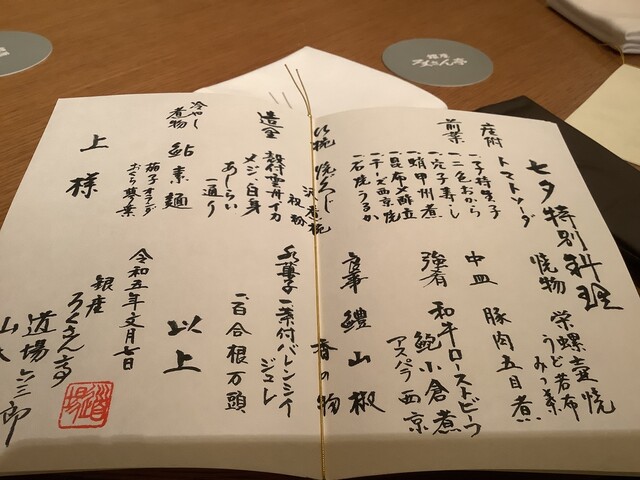 七夕特別料理
座附
トマトソーダ
前菜
一子持昆布
一二色おから
一穴子寿し
一蛸甲州煮
一昆布〆酢立
一チーズ西京焼
一石焼うるか
吸椀
沢煮椀
殻粉
造里
殻付雲丹イカ
メジ白身
あしらい
一通り
冷やし
煮物
鮎素麺
茄子オランダ
おくら
上様
焼物
栄螺壷焼
うど若布
みつ葉
中皿
豚肉五目煮
強肴
和牛ローストビーフ
鮑小倉煮
アスパラ西京
食事
鱧山椒
香の物
水菓子
一茶付バレンシイ
ジュレ
一百合根万頭
以上
令和五年文月七日
銀座
ろくさん亭
道場六三郎
道場
銀座
ろくさん亭